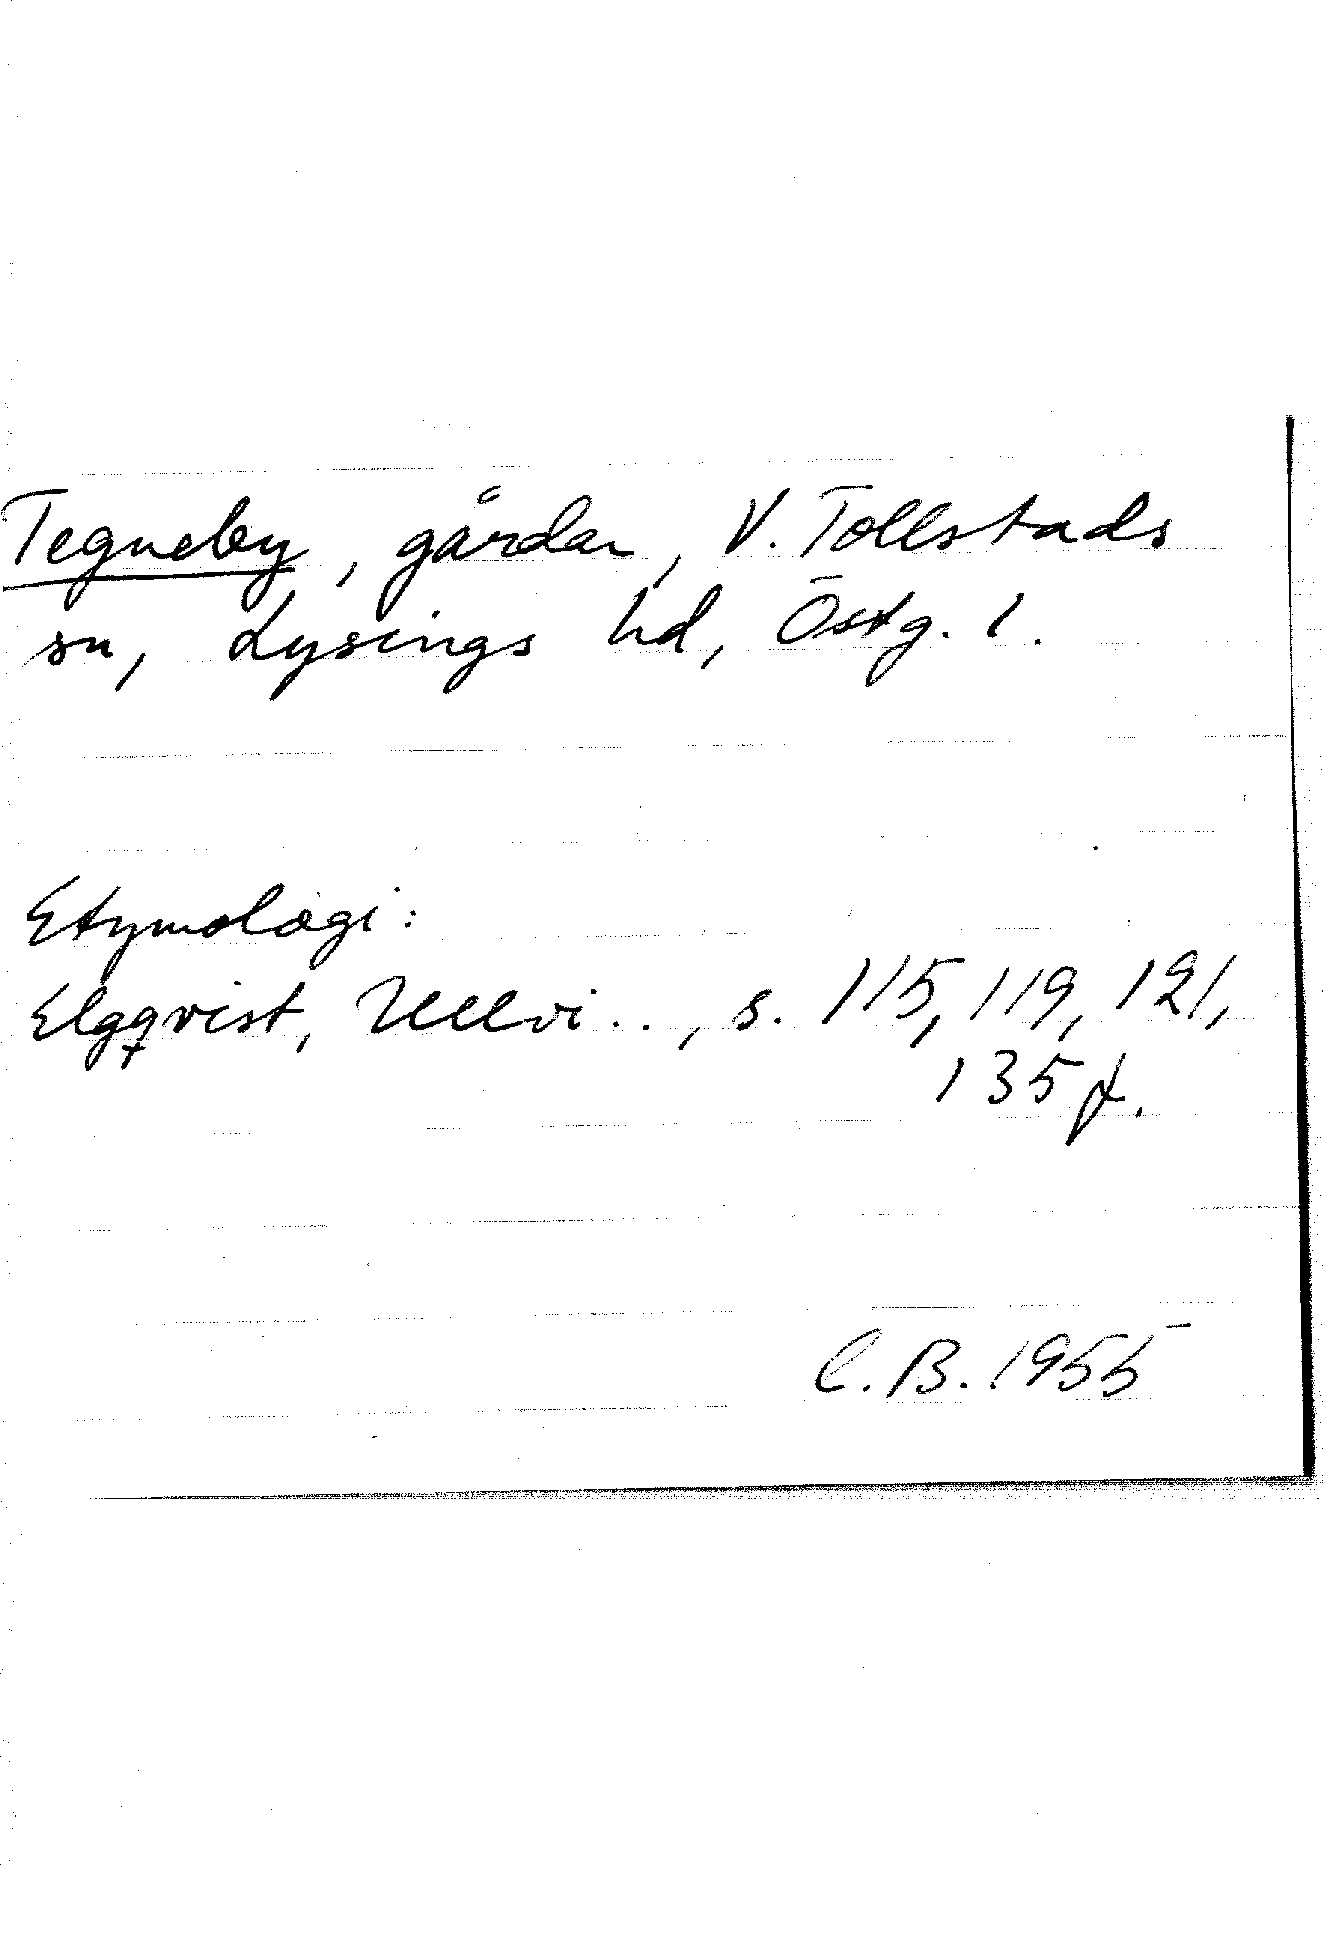 Tegneby, gårdar, V. Tollstads
sn, Lysings hd, Östg. l.
Etymologi:
Elgqvist, Ullvi.., s. 115, 119, 121,
135 f.
C.B. 1955